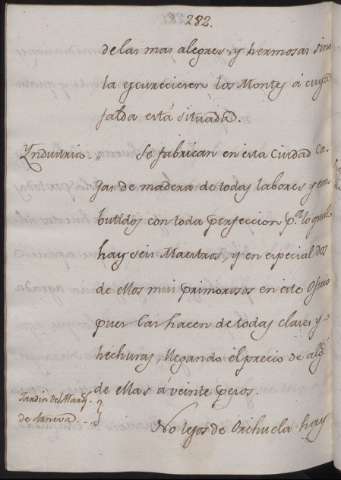 282.
de las mas alegres, y hermosas si no
la escurecieren los Montes á cuya
falda está situada.
Yndustria. Se fabrican en esta Ciudad Ca-
xas de madera de todas labores y em-
butidos con toda perfeccion p.ª lo qual
hay seis Maestros, y en especial dos
de ellos mui primorosos en este Oficio
pues las hacen de todas clases y
hechuras, llegando el precio de alg.s
de ellas á veinte pesos.
Jardin del Marq.s
de
No lejos de Orihuela hay